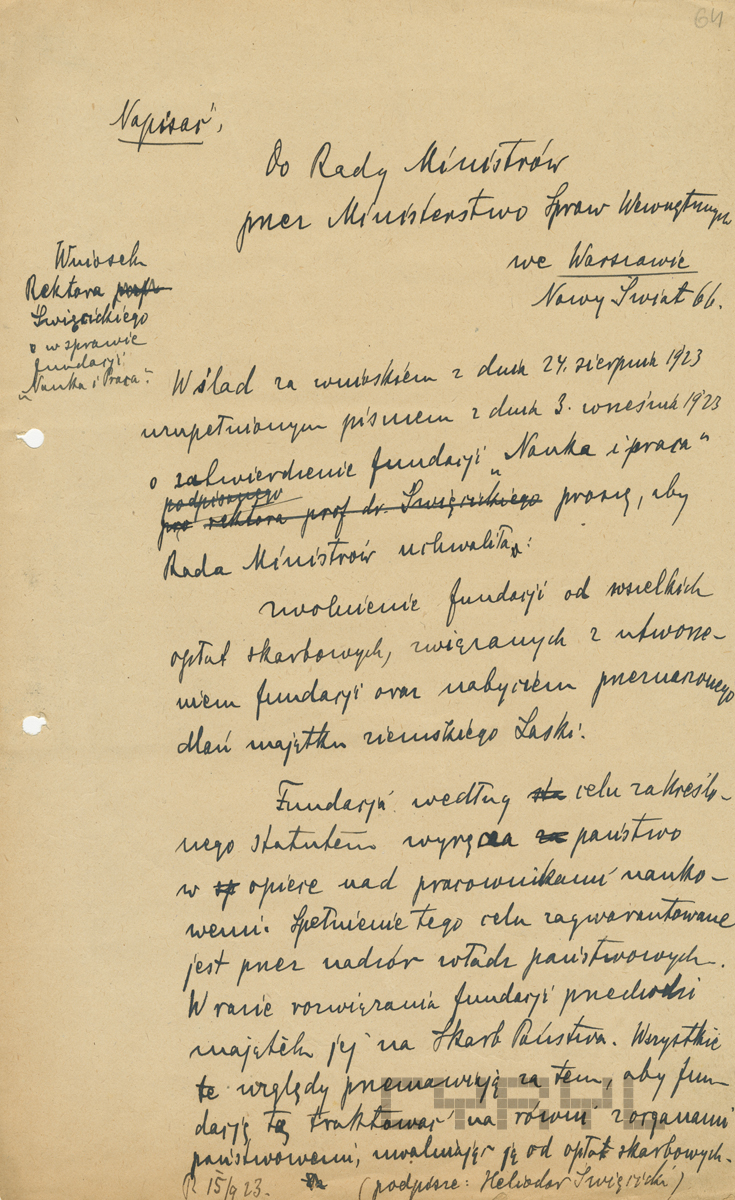 64
Napisać,
Do Rady Ministrów
przez Ministerstwo Spraw Wewnętrznych
we Warszawie
Nowy Świat 66.
Wniosek
Rektora prof
Święcickiego
o w sprawie
fundacji
"Nauka i Praca".
W ślad za wnioskiem z dnia 24. sierpnia 1923
uzupełnionym pismem z dnia 3. września 1923
o zatwierdzenie fundacji „Nauka i praca"
podpisanego
prz rektora prof dr. Święcickiego proszę, aby
Rada Ministrów uchwaliła:
zwolnienie fundacji od wszelkich
opłat skarbowych, związanych z utworze-
niem fundacji oraz nabyciem przeznaczonego
dlań majątku ziemskiego Laski.
Fundacja według sta celu zakreślo-
nego statutem wyręcza za państwo
w sp opiece nad pracownikami nauko-
wemi. Spełnienie tego celu zagwarantowane
jest przez nadzór władz państwowych.
W razie rozwiązania fundacji przechodzi
majątek jej na Skarb Państwa. Wszystkie
te względy przemawiają za tem, aby fun-
dację tę traktować na równi z organami
państwowemi, uwalniając ją od opłat skarbowych.
R 15/9 23. (podpisze: Heliodor Święcicki)
CYRYL